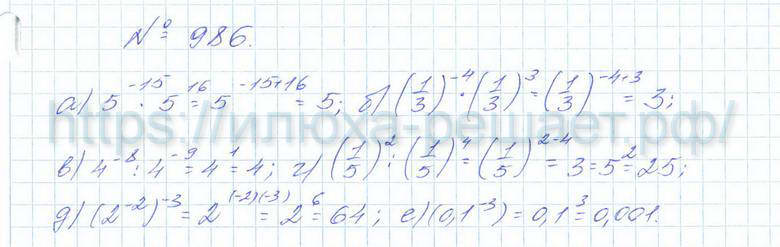 № 986.
а) 5^-15 · 5^16 = 5^-15+16 = 5; б) (1/3)^-4 · (1/3)^3 = (1/3)^-4+3 = 3;
https://илюха-решает.рф/
в) 4^-8 : 4^-9 = 4^1 = 4; г) (1/5)^2 : (1/5)^4 = (1/5)^2-4 = 3 = 5^2 = 25;
д) (2^-2)^-3 = 2^(-2)(-3) = 2^6 = 64; е) (0,1^-3) = 0,1^3 = 0,001.